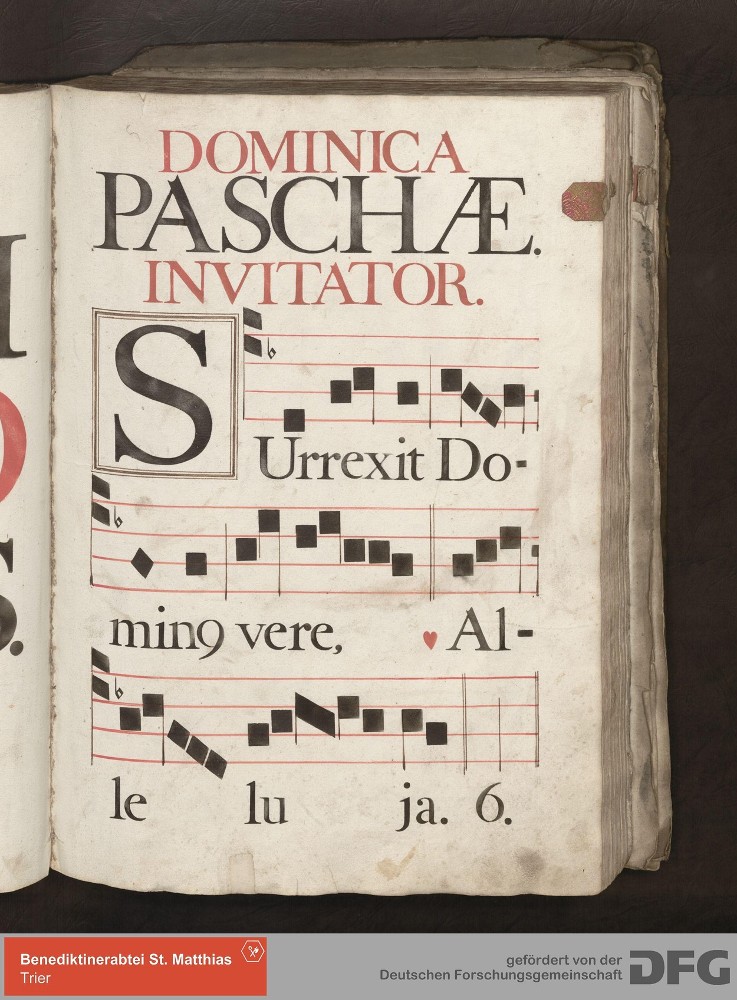 DOMINICA
PASCHÆ.
INVITATOR.
SUrrexit Do-
minꝰ vere, ♥ Al-
le lu ja. 6.
Benediktinerabtei St. Matthias
Trier
gefördert von der
Deutschen Forschungsgemeinschaft
DFG